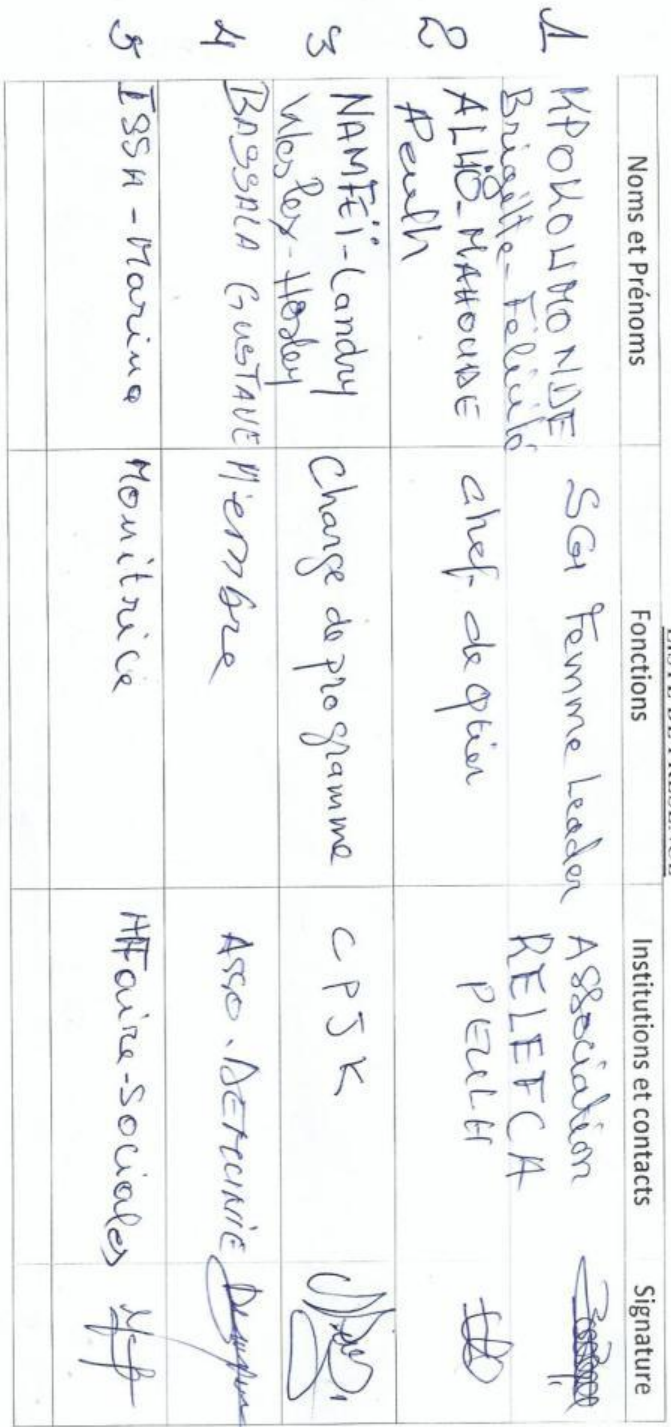 LISTE DE PRESENCE
Noms et Prénoms
Fonctions
Institutions et contacts
Signature
1
KPOKOUMONDE
Brigitte-Félicité
SG1 Femme Leader
Association
RELEFCA
2
ALHO-MAHOUDE
Peulh
chef de qtier
PEULH
3
NAMFEÏ-Landry
Wesley-Hosley
Charge de programme
CPJK
4
BASSALA GUSTAVE
Membre
Asso.
5
ISSA-Marina
Monitrice
Affaire-Sociales